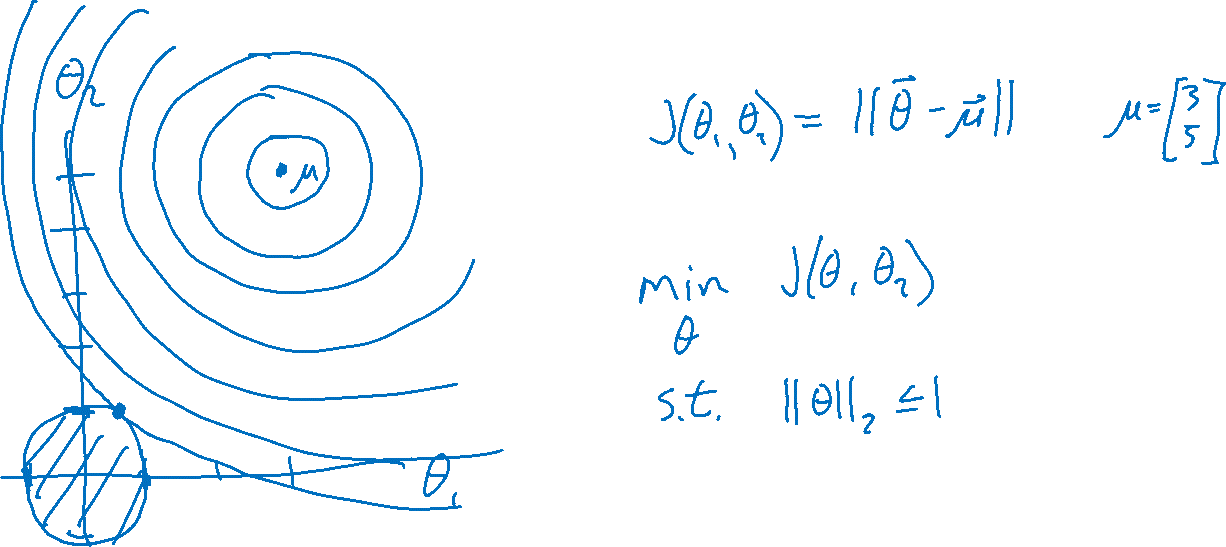 θ₂
μ
θ₁
J(θ₁,θ₂) = ||θ⃗ - μ⃗|| μ = [3 5]
min J(θ, θ₂)
θ
s.t. ||θ||₂ ≤ 1